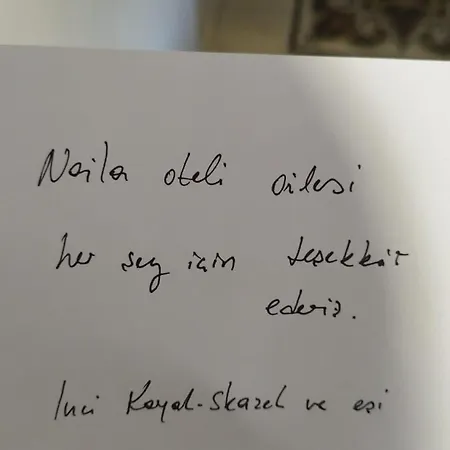 Naila oteli ailesi
her şey için teşekkür
ederiz.
Inci Kayal-Skazel ve eşi